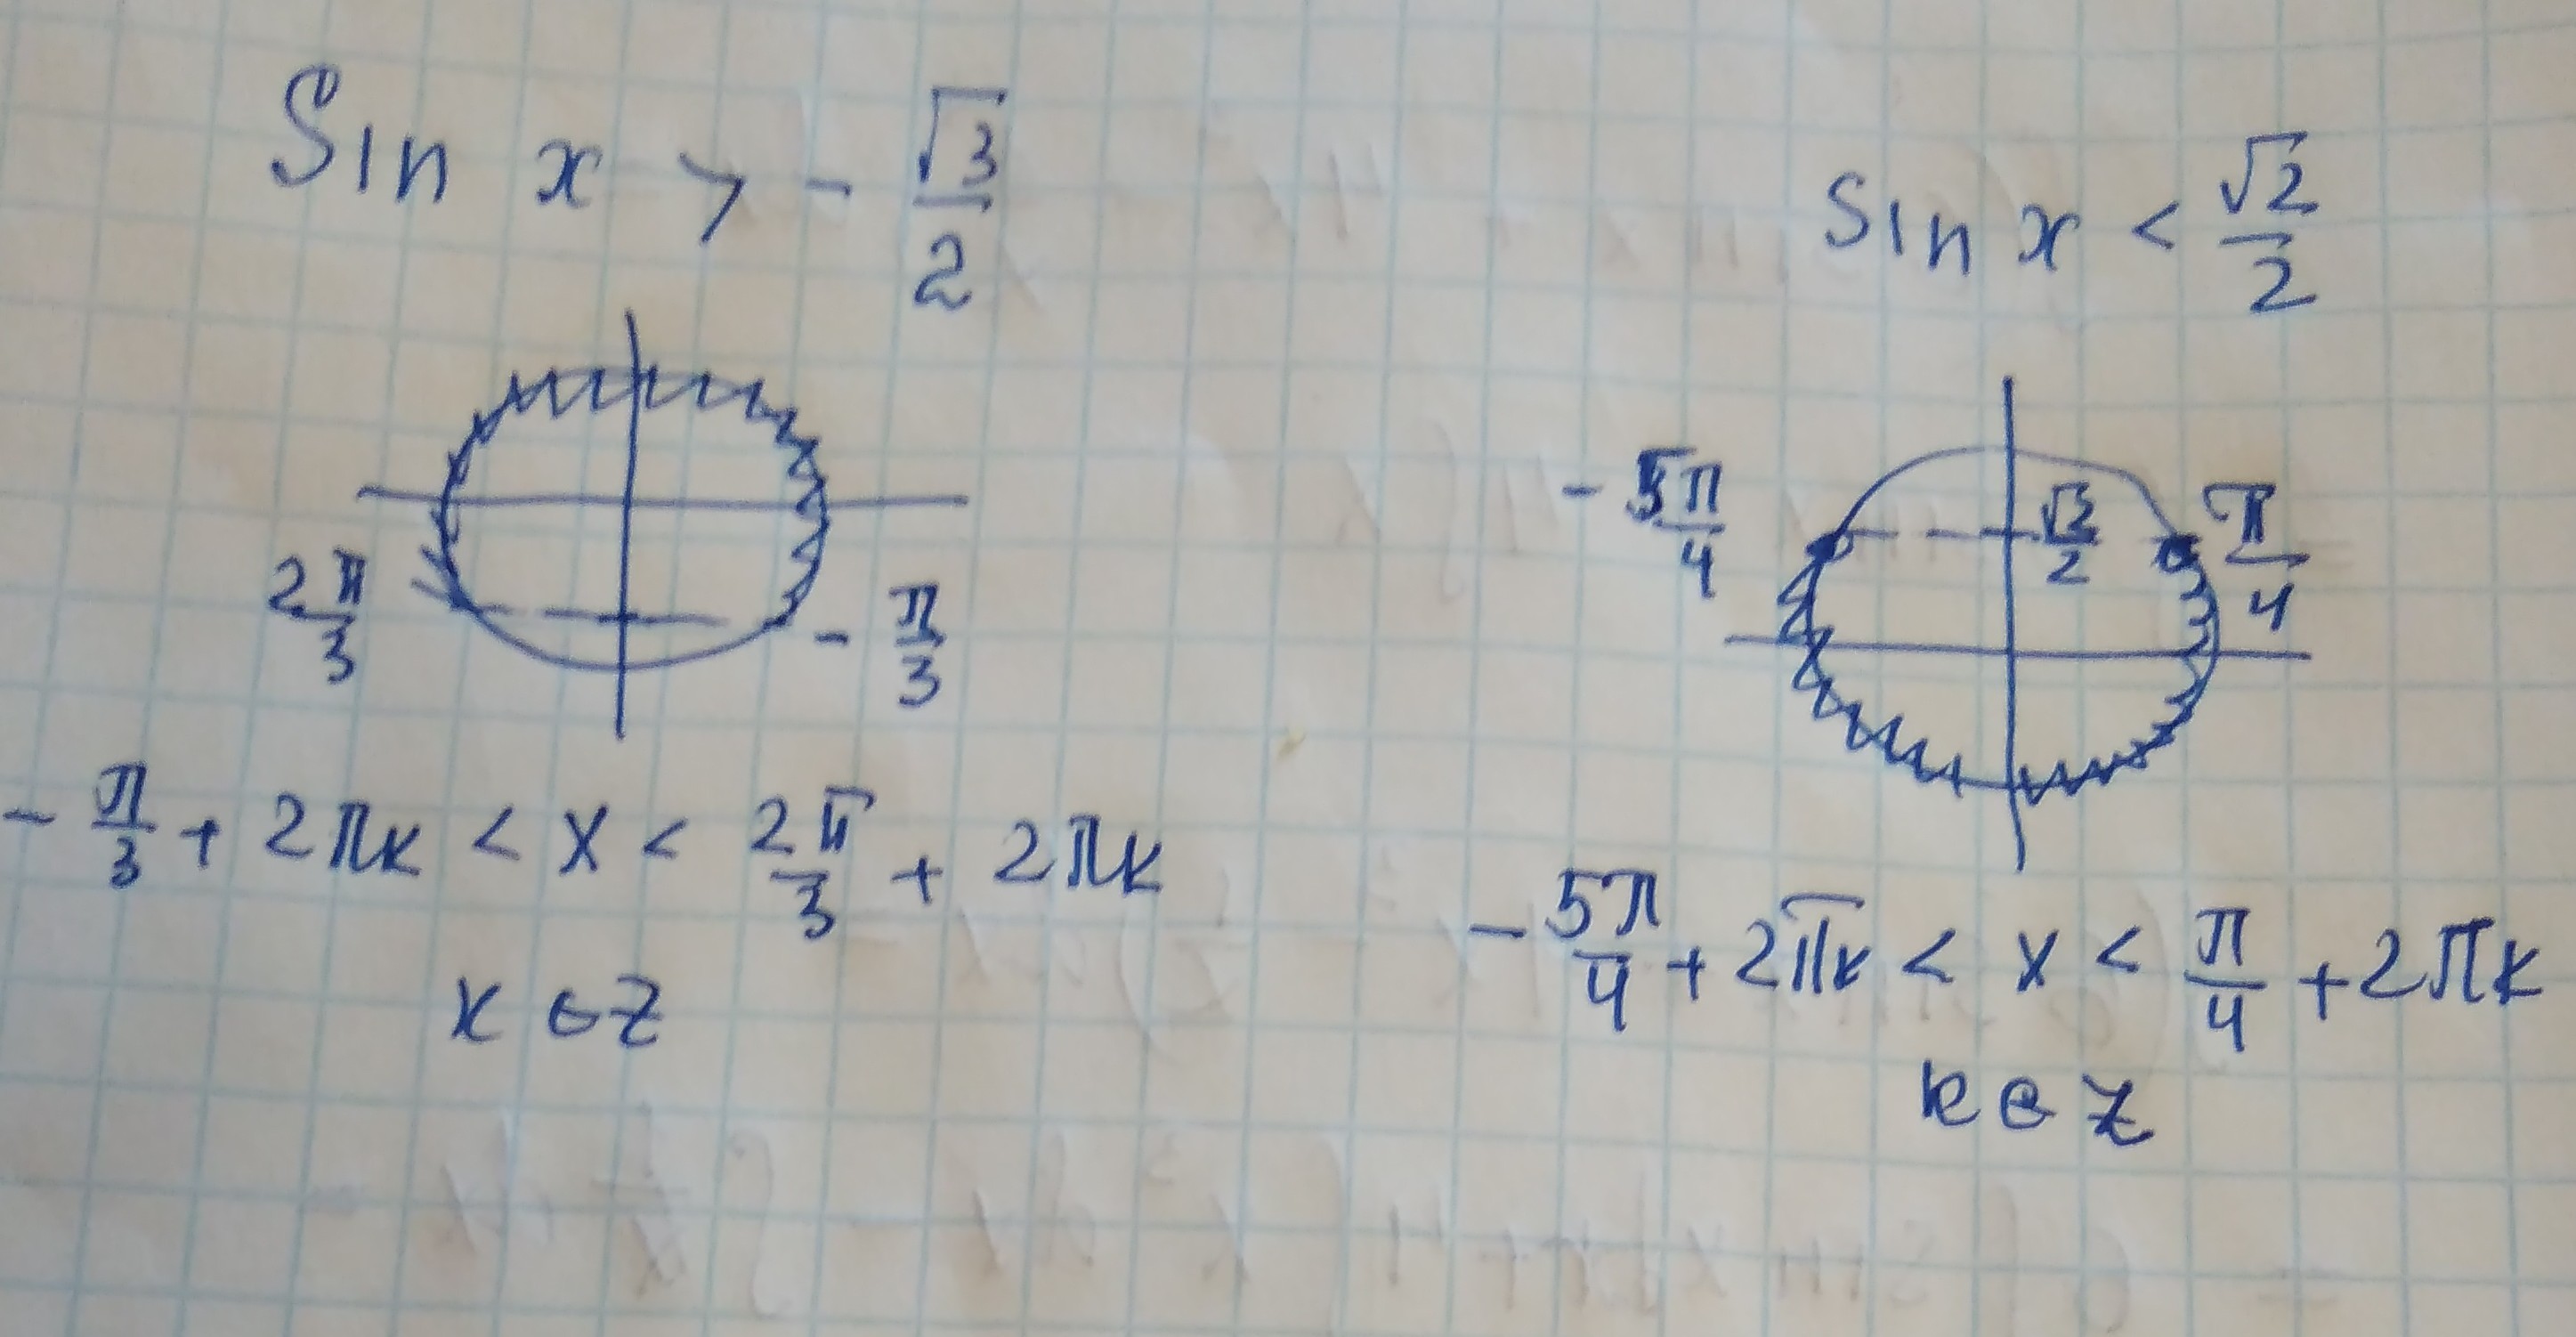 Sin x > - √3/2
2π/3
- π/3
- π/3 + 2πk < x < 2π/3 + 2πk
k ∈ Z
Sin x < √2/2
- 5π/4
√2/2
π/4
- 5π/4 + 2πk < x < π/4 + 2πk
k ∈ Z